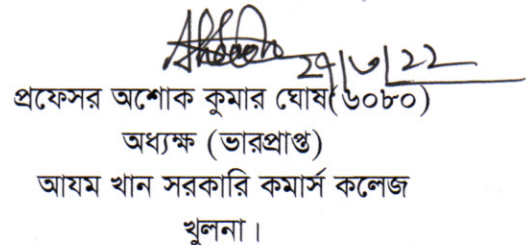 ২৭|৬|২২
প্রফেসর অশোক কুমার ঘোষ(৬০৮০)
অধ্যক্ষ (ভারপ্রাপ্ত)
আযম খান সরকারি কমার্স কলেজ
খুলনা।